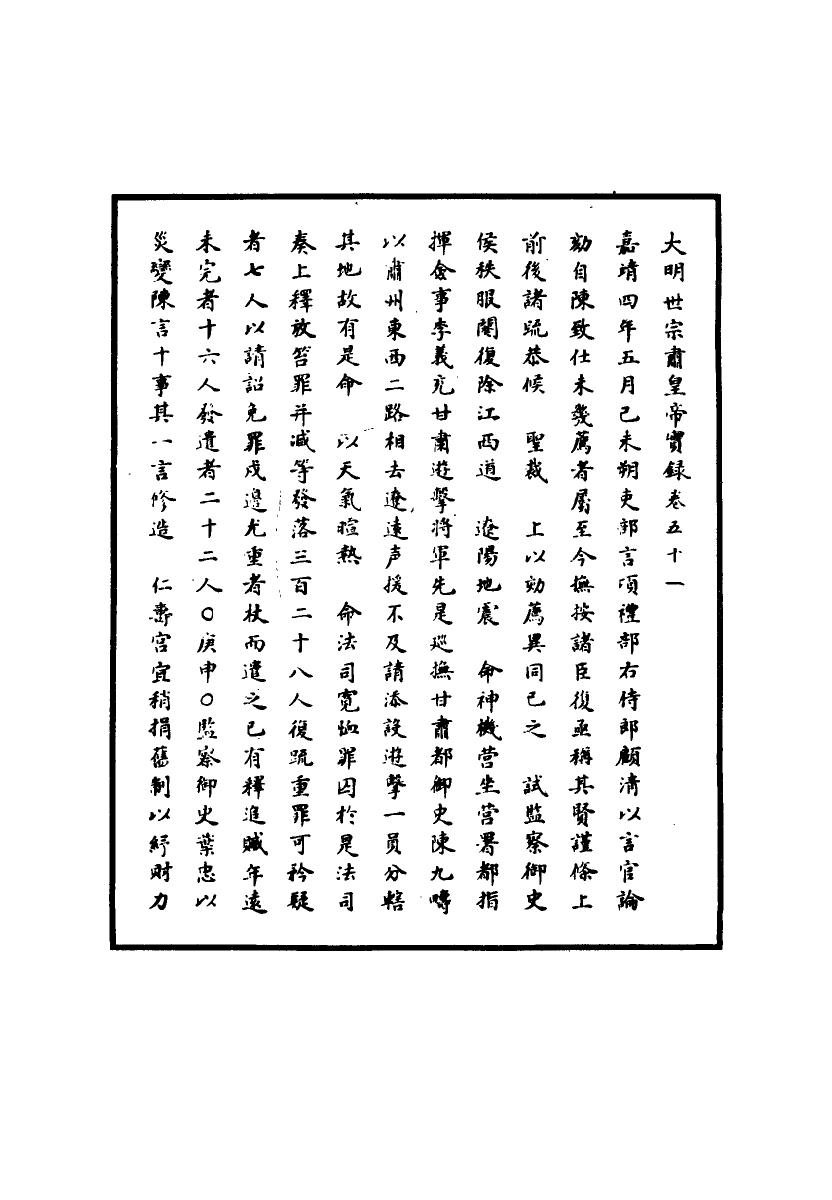 大明世宗肅皇帝實録卷五十一
嘉靖四年五月己未朔吏部言頃禮部右侍郎顧清以言官論
劾自陳致仕未幾薦者屬至今撫按諸臣復亟稱其賢謹條上
前後諸疏恭候　聖裁　上以劾薦異同已之　試監察御史
侯秩服闋復除江西道　遼陽地震　命神機营坐营署都指
揮僉事李義充甘肅遊擊将軍先是巡撫甘肅都御史陳九疇
以肅州東西二路相去遼遠声援不及請添設遊擊一員分轄
其地故有是命　以天氣暄熱　命法司寛恤罪囚於是法司
奏上釋放笞罪并減等發落三百二十八人復疏重罪可矜疑
者七人以請詔免罪戍邊尤重者杖而遣之已有釋追贓年遠
未完者十六人發遣者二十二人○庚申○監察御史葉忠以
災變陳言十事其一言修造　仁壽宫宜稍損舊制以紓財力